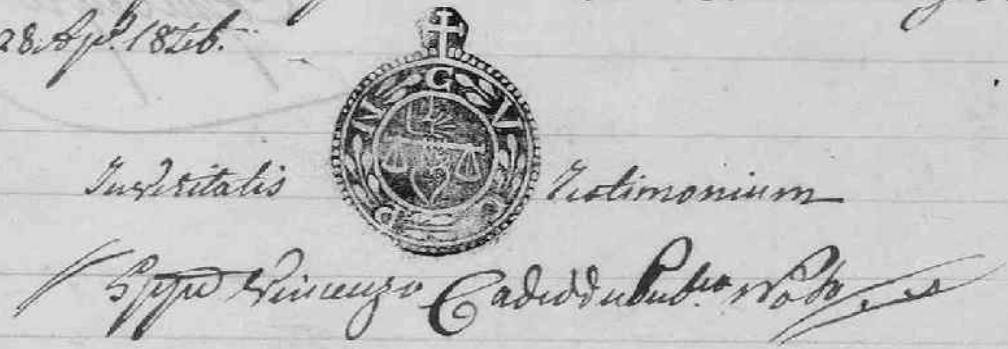 28. Apr. 18
N G V C P
In Veritatis Testimonium
Vincenzo Cadeddu Pub.co Noto